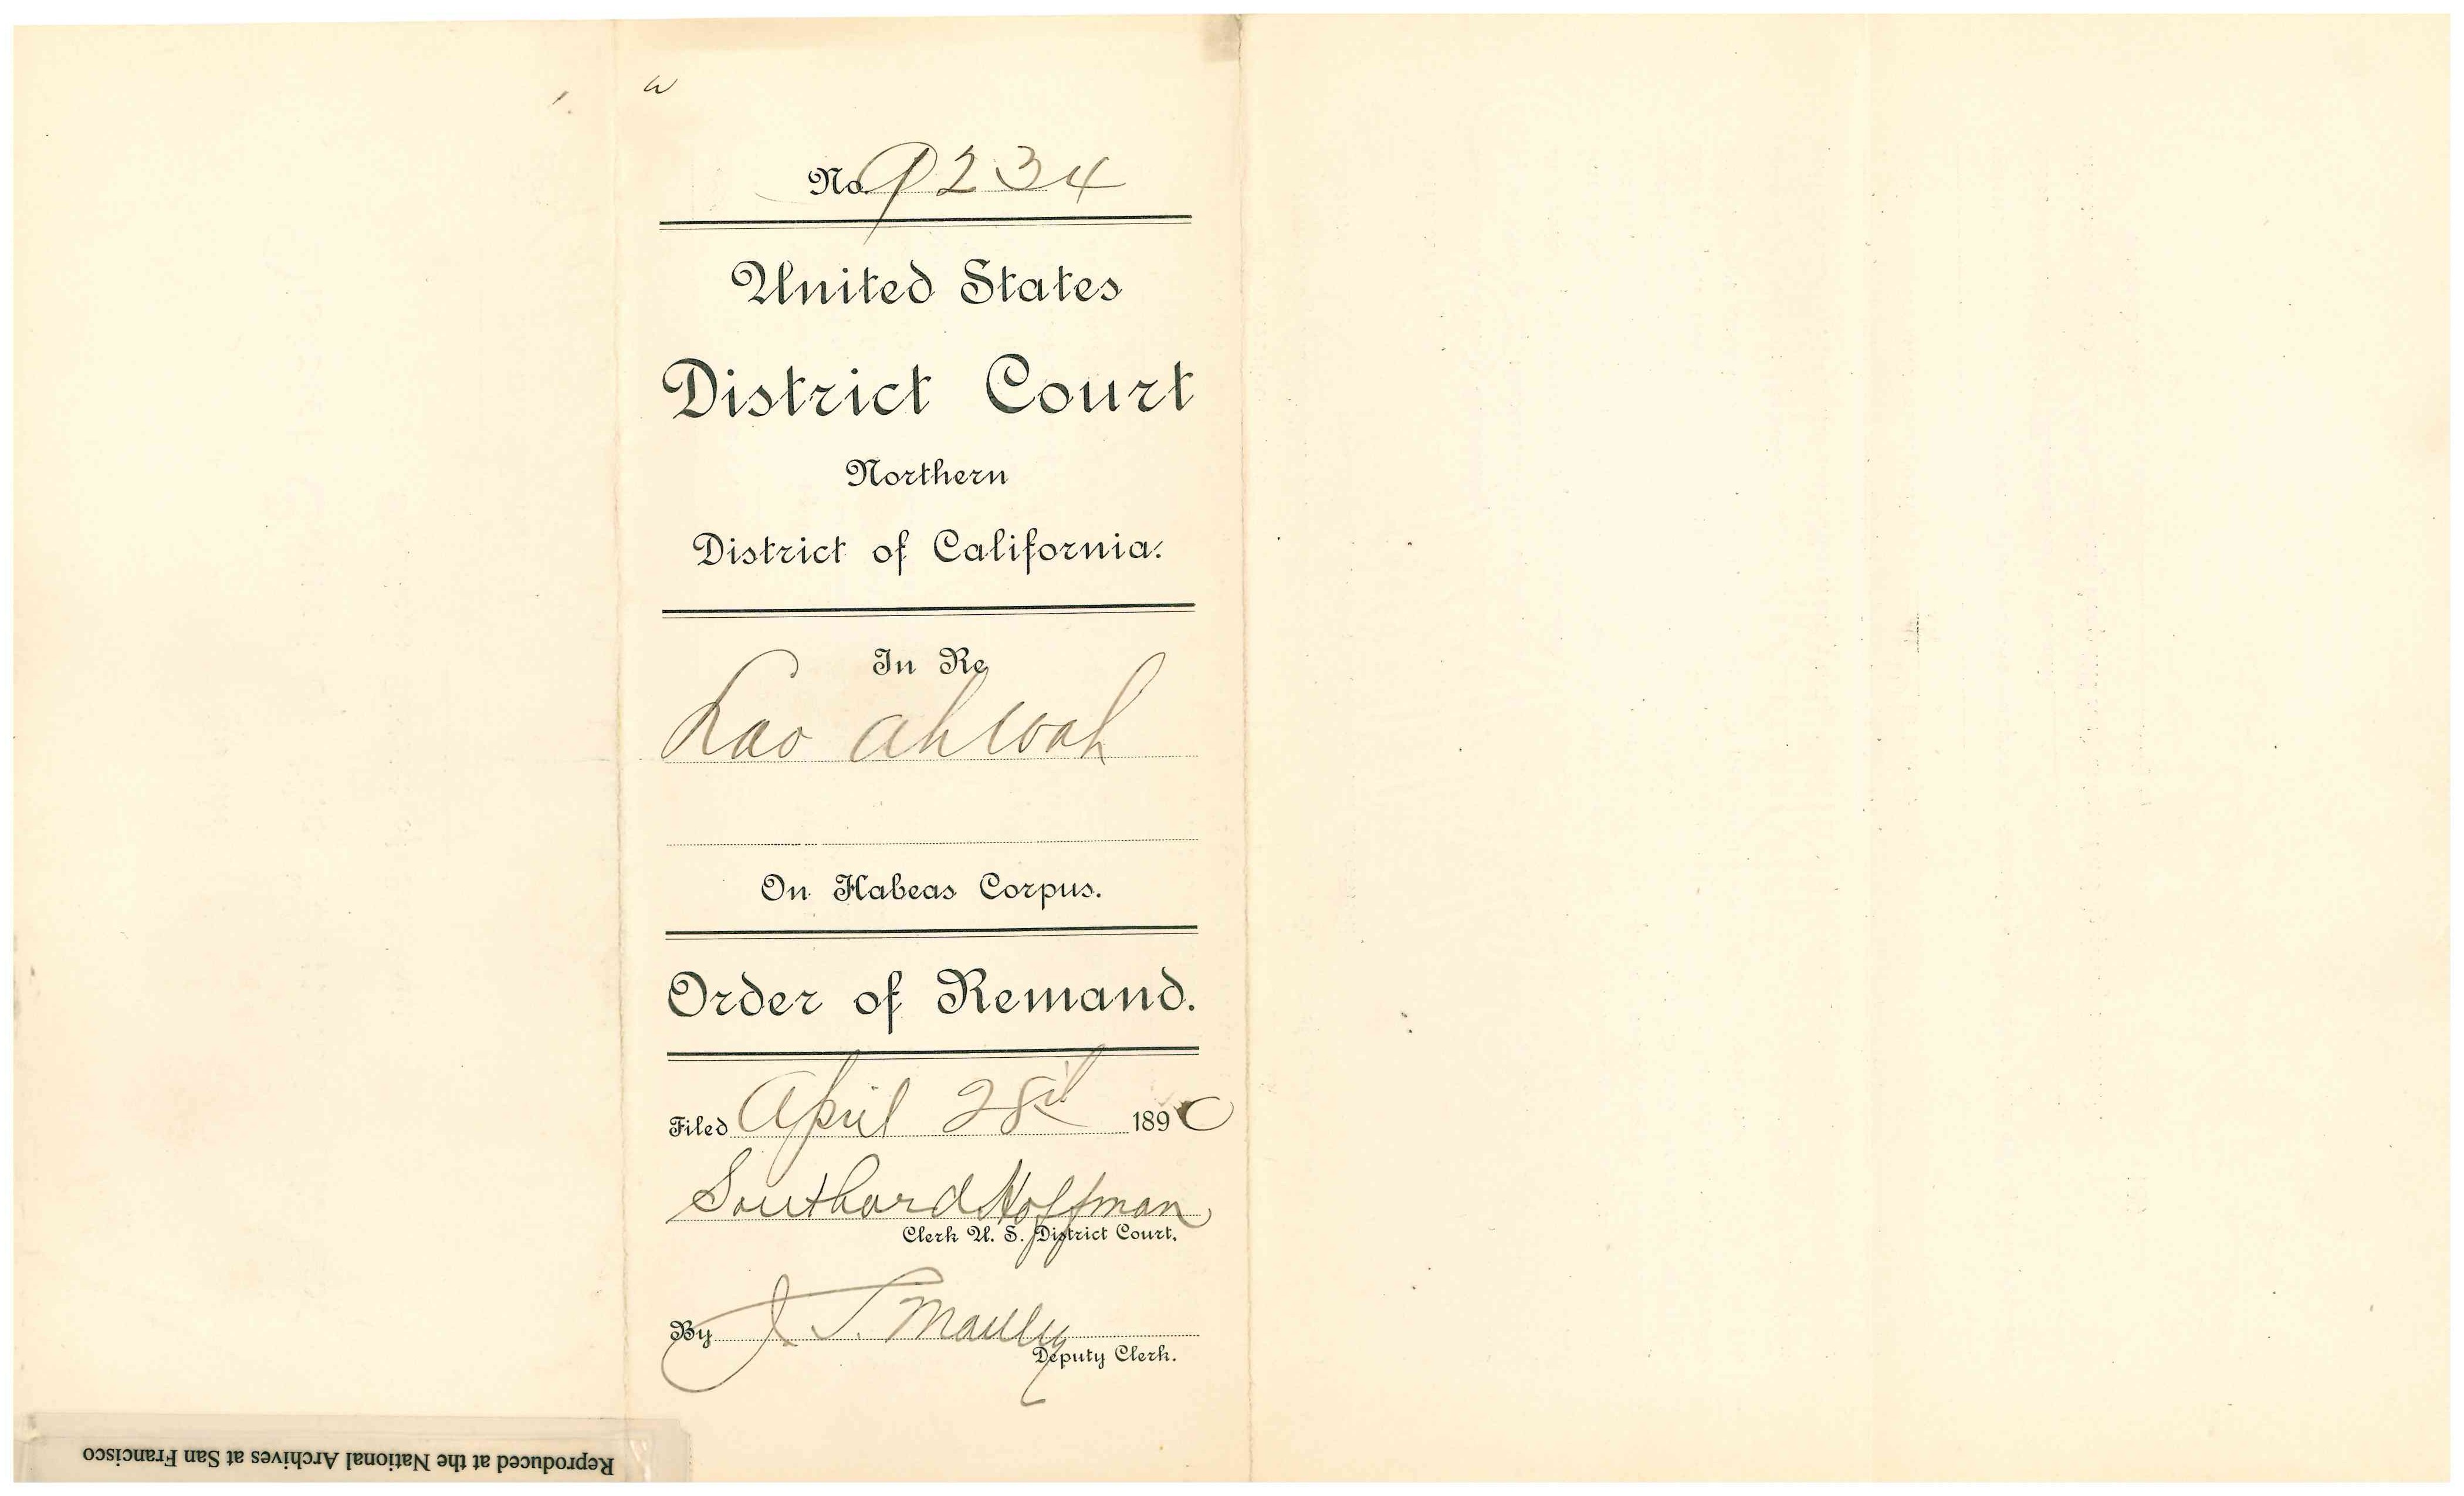 No. 9234
United States
District Court
Northern
District of California.
In Re
Lao Ah Wah
On Habeas Corpus.
Order of Remand.
Filed April 28th 1890
Southard Hoffman
Clerk U. S. District Court.
By J. S. Manley
Deputy Clerk.
Reproduced at the National Archives at San Francisco